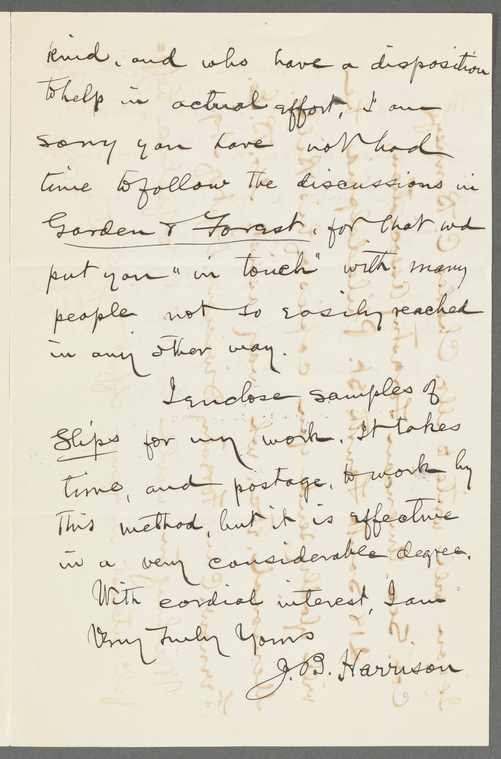 kind, and who have a disposition
to help in actual effort. I am
sorry you have not had
time to follow the discussions in
Garden & Forest, for that wd
put you "in touch" with many
people not so easily reached
in any other way.
I enclose samples of
Slips for my work. It takes
time, and postage, to work by
this method, but it is effective
in a very considerable degree.
With cordial interest, I am
Very Truly Yours
J. B. Harrison